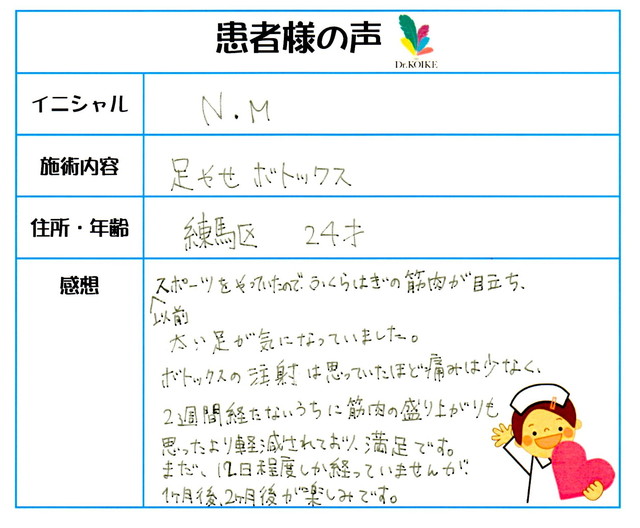 患者様の声
Dr.KOIKE
イニシャル
N.M
施術内容
足やせ ボトックス
住所・年齢
練馬区 24才
感想
スポーツをやっていたので、ふくらはぎの筋肉が目立ち、
以前
太い足が気になっていました。
ボトックスの注射は思っていたほど痛みは少なく、
2週間経たないうちに筋肉の盛り上がりも
思ったより軽減されており、満足です。
まだ、12日程度しか経っていませんが、
1ヶ月後、2ヶ月後が楽しみです。